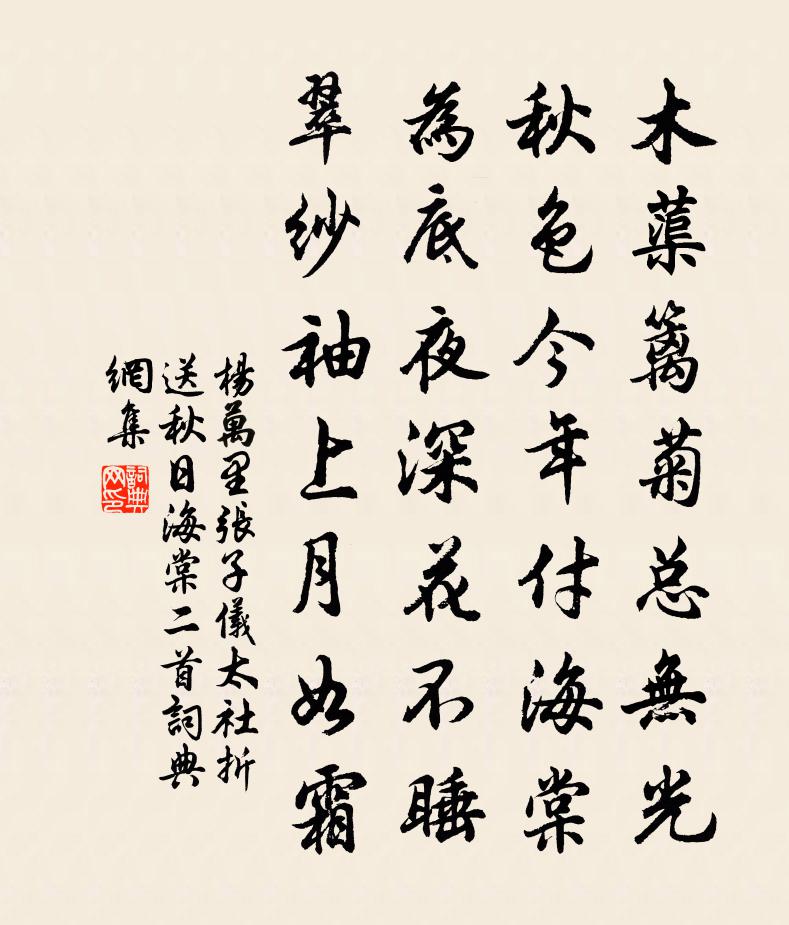 木蕖籬菊总無光
秋色今年付海棠
為底夜深花不睡
翠紗袖上月如霜
楊萬里張子儀太社折
送秋日海棠二首詞典
網集
詞典
网印